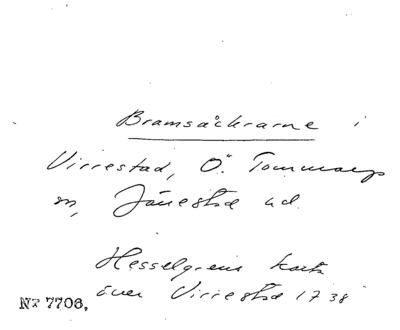 Bramsåkrarne i
Virrestad, Ö. Tommarps
sn, Järrestads hd.
Hesselgrens karta
över Virrestad 1738
No 7706,